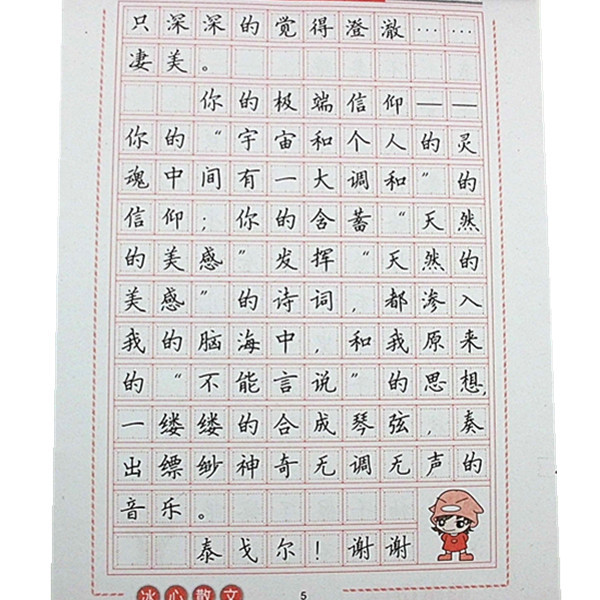 只深深的觉得澄澈……
凄美。
你的极端信仰——
你的“宇宙和个人的灵
魂中间有一大调和”的
信仰；你的含蓄“天然
的美感”发挥“天然的
美感”的诗词，都渗入
我的脑海中，和我原来
的“不能言说”的思想，
一缕缕的合成琴弦，奏
出缥缈神奇无调无声的
音乐。
泰戈尔！谢谢
冰心散文
5